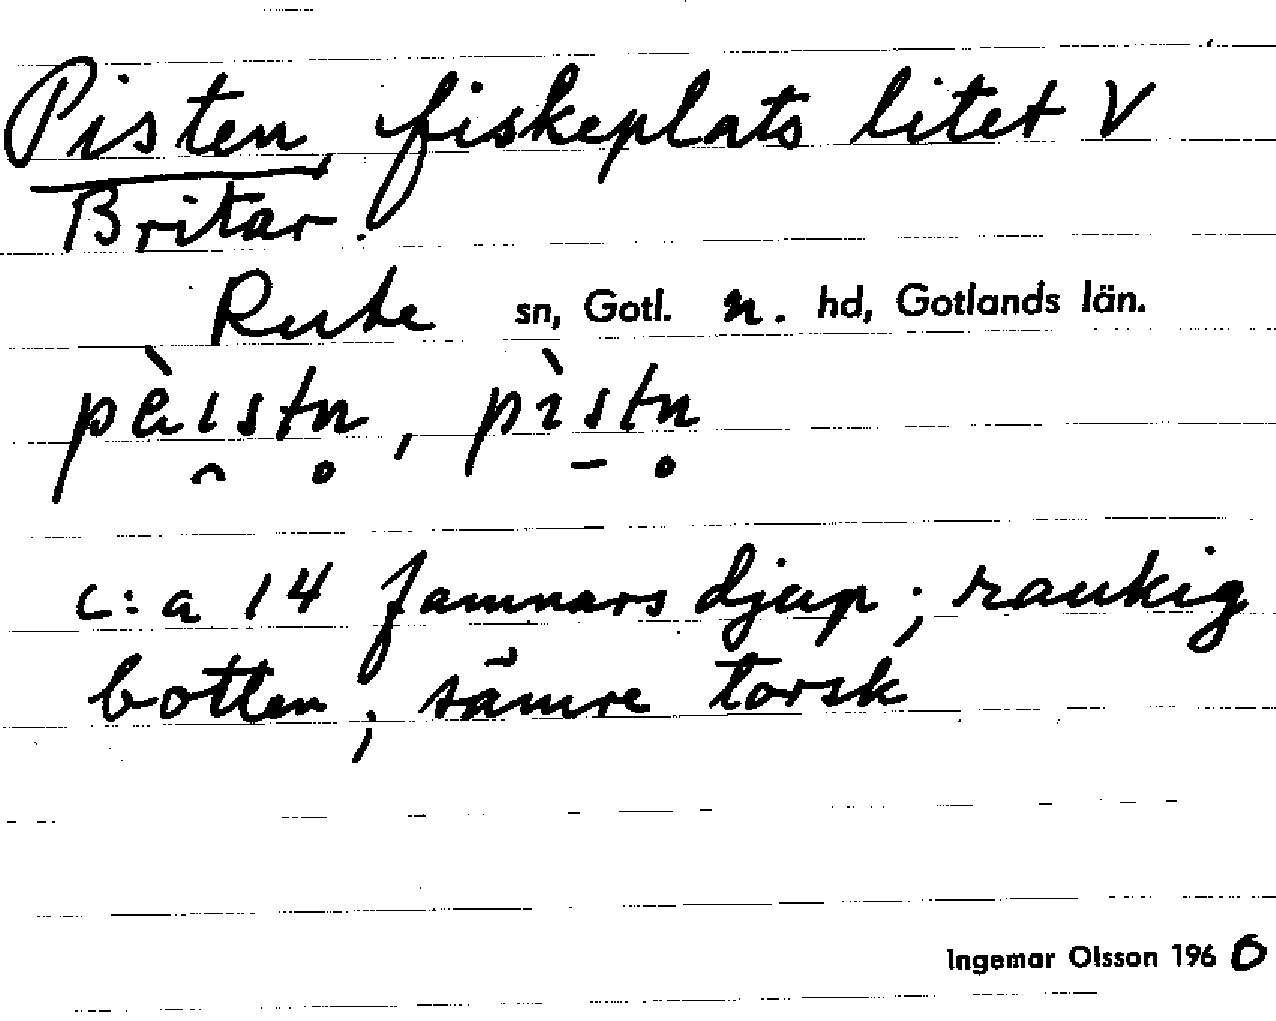 Pisten, fiskeplats litet V
Britar.
Rute sn, Gotl. n. hd, Gotlands län.
pèı̯stn̥, pìs̠tn̥
c:a 14 famnars djup; raukig
botten; sämre torsk
Ingemar Olsson 1960